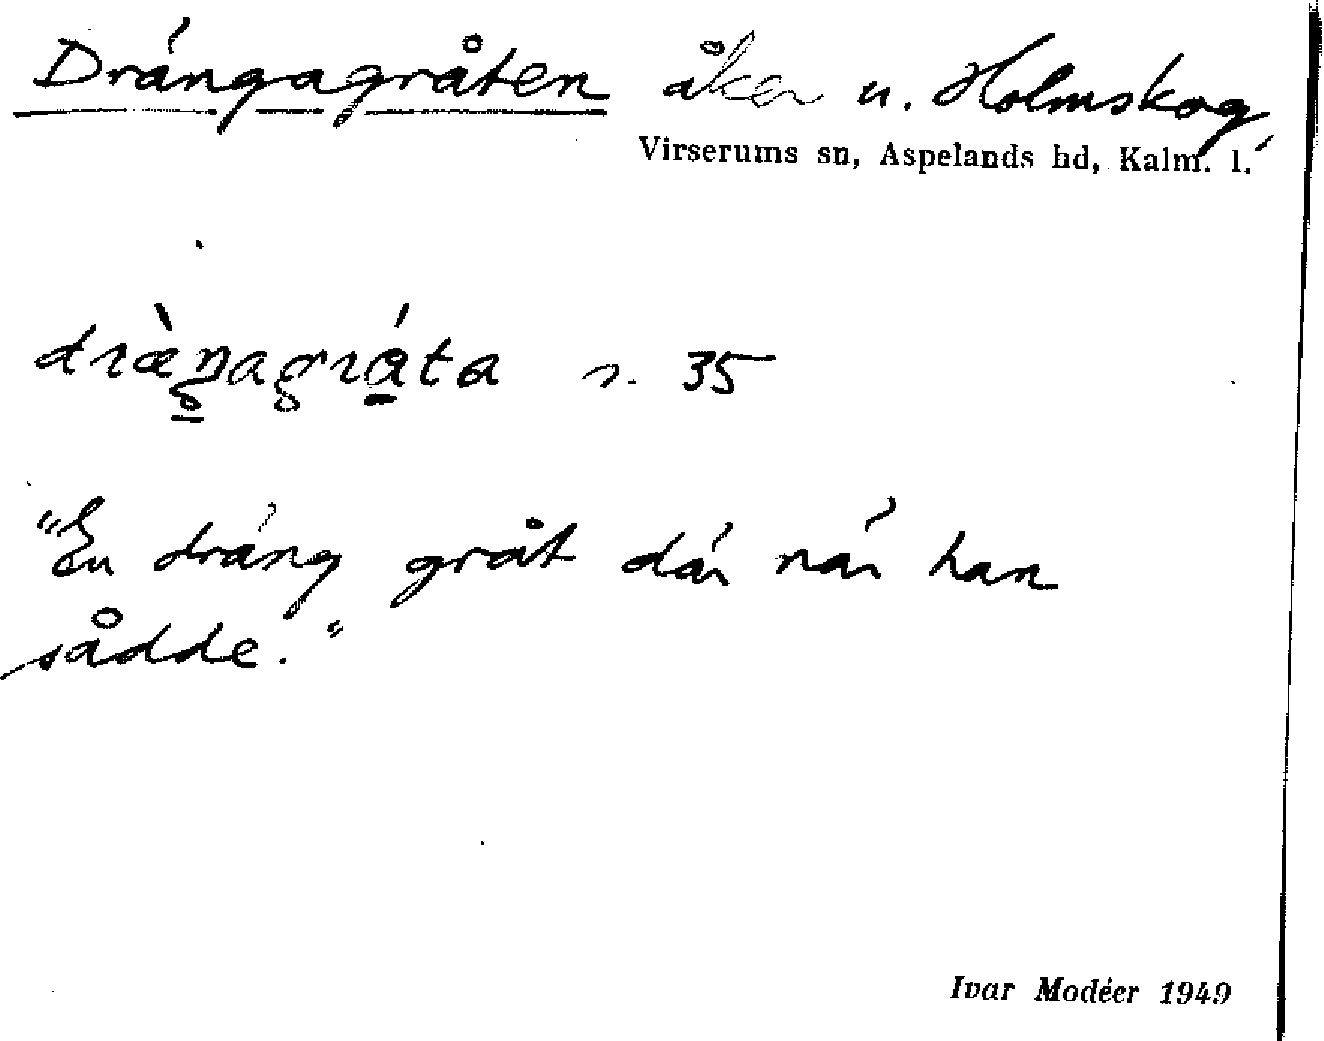 Drängagråten åker u. Holmskog,
Virserums sn, Aspelands hd, Kalm. l.
dræ̀ŋagráta s. 35
"En dräng gråt där när han
sådde."
Ivar Modéer 1949